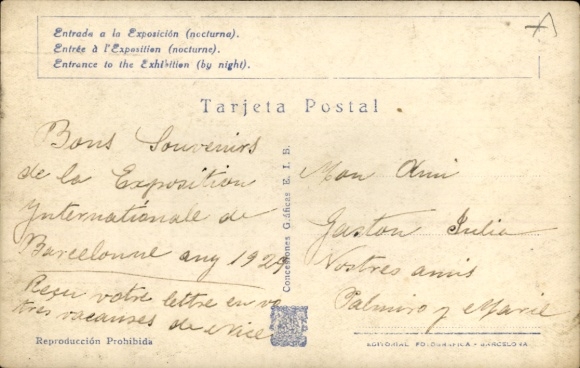 Entrada a la Exposición (nocturna).
Entrée à l'Exposition (nocturne).
Entrance to the Exhibition (by night).
Tarjeta Postal
Bons Souvenirs
de la Exposition
Internationale de
Barcelonne any 1929
Reçu votre lettre en vo
tres vacanses de Nice
Concesiones Gráficas E. I. B.
Mon Ami
Gaston Julia
Nostres amis
Palmiro y Marie
Reproducción Prohibida
EDITORIAL FOTOGRAFICA - BARCELONA